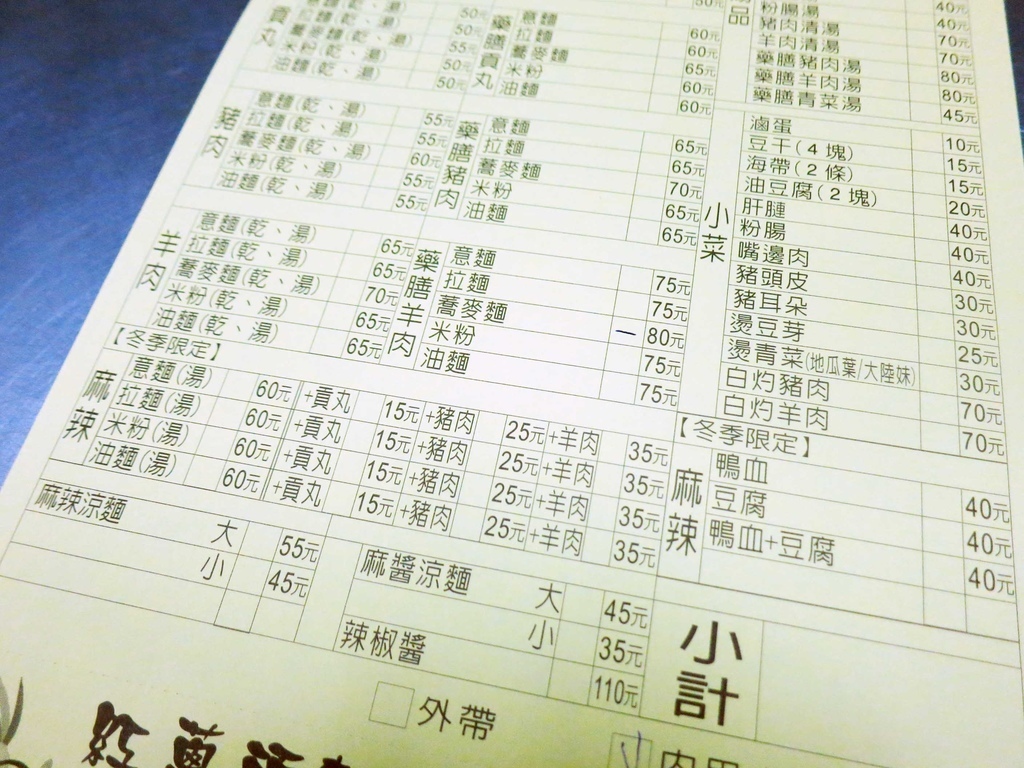 貢丸
意麵(乾、湯) 50元
拉麵(乾、湯) 50元
蕎麥麵(乾、湯) 55元
米粉(乾、湯) 50元
油麵(乾、湯) 50元
豬肉
意麵(乾、湯) 55元
拉麵(乾、湯) 55元
蕎麥麵(乾、湯) 60元
米粉(乾、湯) 55元
油麵(乾、湯) 55元
羊肉
意麵(乾、湯) 65元
拉麵(乾、湯) 65元
蕎麥麵(乾、湯) 70元
米粉(乾、湯) 65元
油麵(乾、湯) 65元
藥膳貢丸
意麵 60元
拉麵 60元
蕎麥麵 65元
米粉 60元
油麵 60元
藥膳豬肉
意麵 65元
拉麵 65元
蕎麥麵 70元
米粉 65元
油麵 65元
藥膳羊肉
意麵 75元
拉麵 75元
蕎麥麵 一 80元
米粉 75元
油麵 75元
【冬季限定】
麻辣
意麵(湯) 60元 +貢丸 15元 +豬肉 25元 +羊肉 35元
拉麵(湯) 60元 +貢丸 15元 +豬肉 25元 +羊肉 35元
米粉(湯) 60元 +貢丸 15元 +豬肉 25元 +羊肉 35元
油麵(湯) 60元 +貢丸 15元 +豬肉 25元 +羊肉 35元
麻辣涼麵 大 55元
小 45元
麻醬涼麵 大 45元
小 35元
辣椒醬 110元
品
粉腸湯 40元
豬肉清湯 70元
羊肉清湯 70元
藥膳豬肉湯 80元
藥膳羊肉湯 80元
藥膳青菜湯 45元
小菜
滷蛋 10元
豆干(4塊) 15元
海帶(2條) 15元
油豆腐(2塊) 20元
肝腱 40元
粉腸 40元
嘴邊肉 40元
豬頭皮 30元
豬耳朵 30元
燙豆芽 25元
燙青菜(地瓜葉/大陸妹) 30元
白灼豬肉 70元
白灼羊肉 70元
【冬季限定】
麻辣
鴨血 40元
豆腐 40元
鴨血+豆腐 40元
小計
外帶
內用